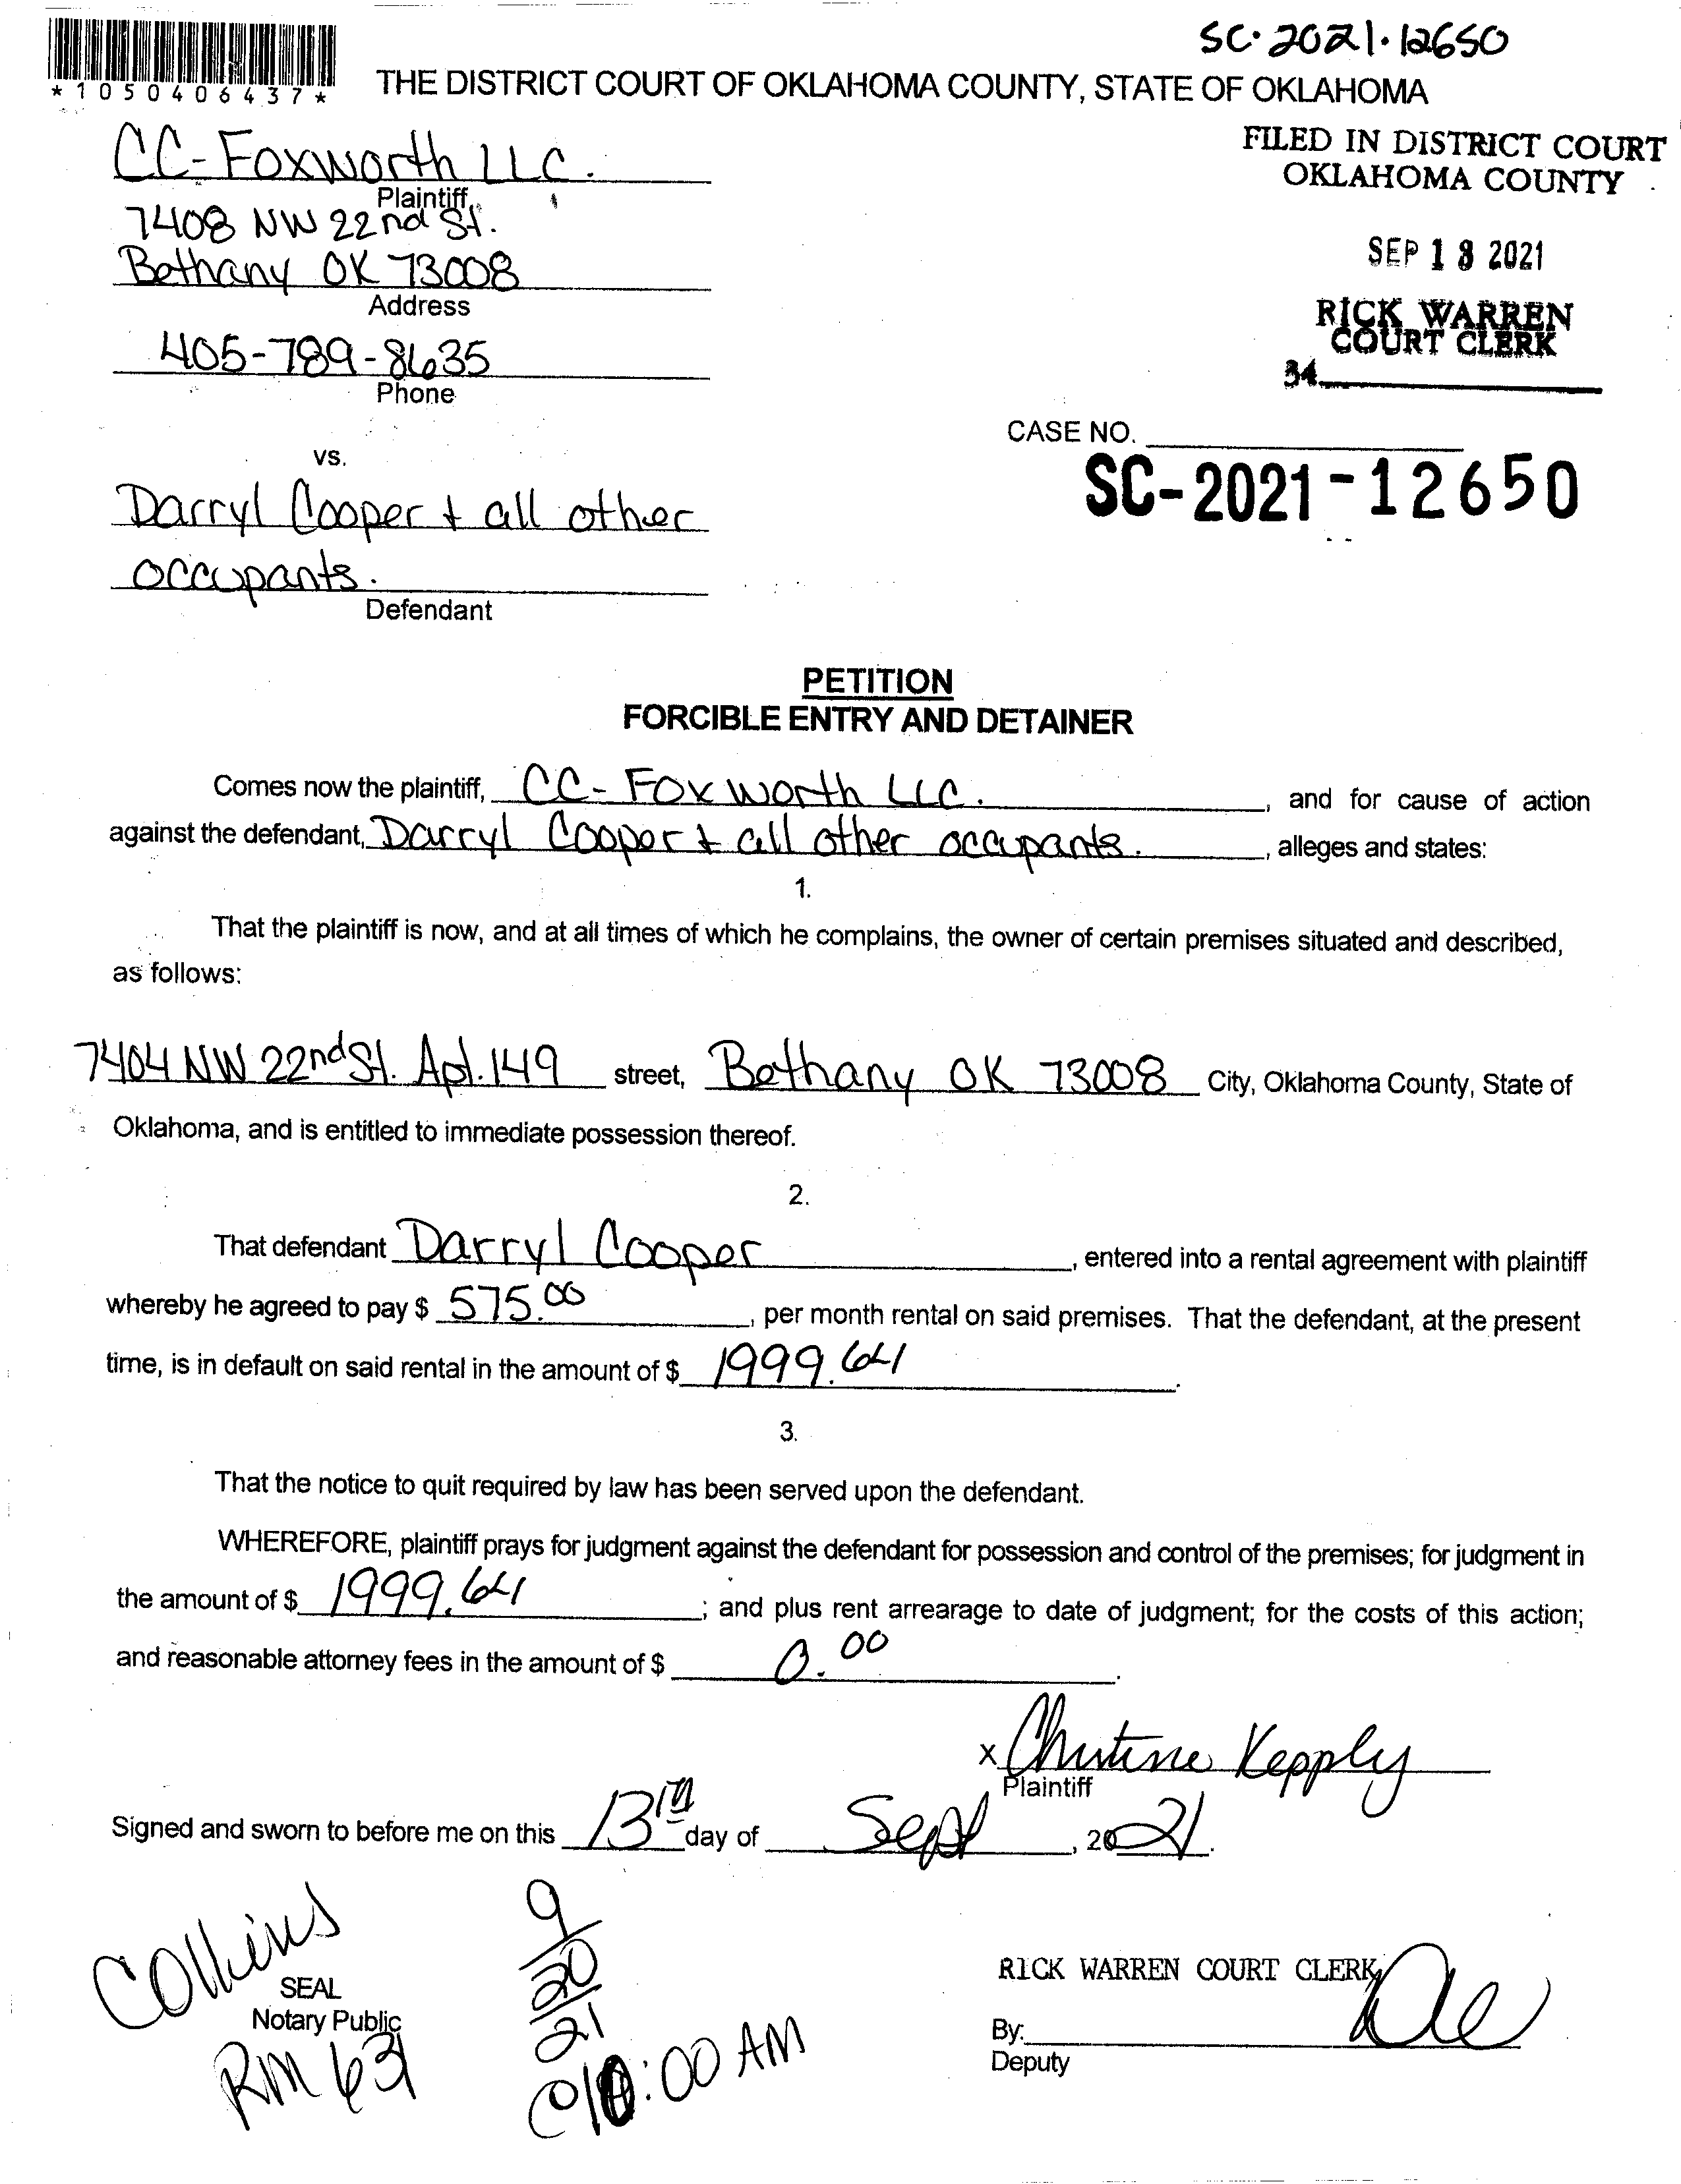 SC-2021-12650
*1050406437*
THE DISTRICT COURT OF OKLAHOMA COUNTY, STATE OF OKLAHOMA
CC-Foxworth LLC.
Plaintiff
7408 NW 22nd St.
Bethany OK 73008
Address
405-789-8635
Phone
FILED IN DISTRICT COURT
OKLAHOMA COUNTY
SEP 13 2021
RICK WARREN
COURT CLERK
34
CASE NO.
SC-2021-12650
vs.
Darryl Cooper + all other
occupants.
Defendant
PETITION
FORCIBLE ENTRY AND DETAINER
Comes now the plaintiff, CC-Foxworth LLC. , and for cause of action
against the defendant, Darryl Cooper + all other occupants. , alleges and states:
1.
That the plaintiff is now, and at all times of which he complains, the owner of certain premises situated and described,
as follows:
7404 NW 22nd St. Apt. 149 street, Bethany OK 73008 City, Oklahoma County, State of
Oklahoma, and is entitled to immediate possession thereof.
2.
That defendant Darryl Cooper , entered into a rental agreement with plaintiff
whereby he agreed to pay $ 575.00 , per month rental on said premises. That the defendant, at the present
time, is in default on said rental in the amount of $ 1999.64 .
3.
That the notice to quit required by law has been served upon the defendant.
WHEREFORE, plaintiff prays for judgment against the defendant for possession and control of the premises; for judgment in
the amount of $ 1999.64 ; and plus rent arrearage to date of judgment; for the costs of this action;
and reasonable attorney fees in the amount of $ 0.00 .
x Christine Kepply
Plaintiff
Signed and sworn to before me on this 13th day of Sept , 2021.
Collins
SEAL
Notary Public
RM 631
9/20/21
@10:00 AM
RICK WARREN COURT CLERK
By:
Deputy